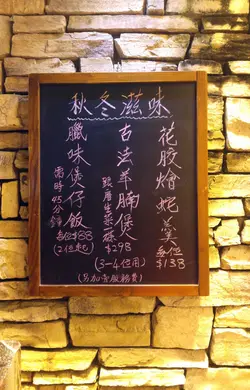 秋冬滋味
花膠燴蛇羹
每位
$138
古法羊腩煲
跟唐生菜一碟
$298
(3~4位用)
臘味煲仔飯
需時45分鐘
每位$88
(2位起)
(另加壹服務費)